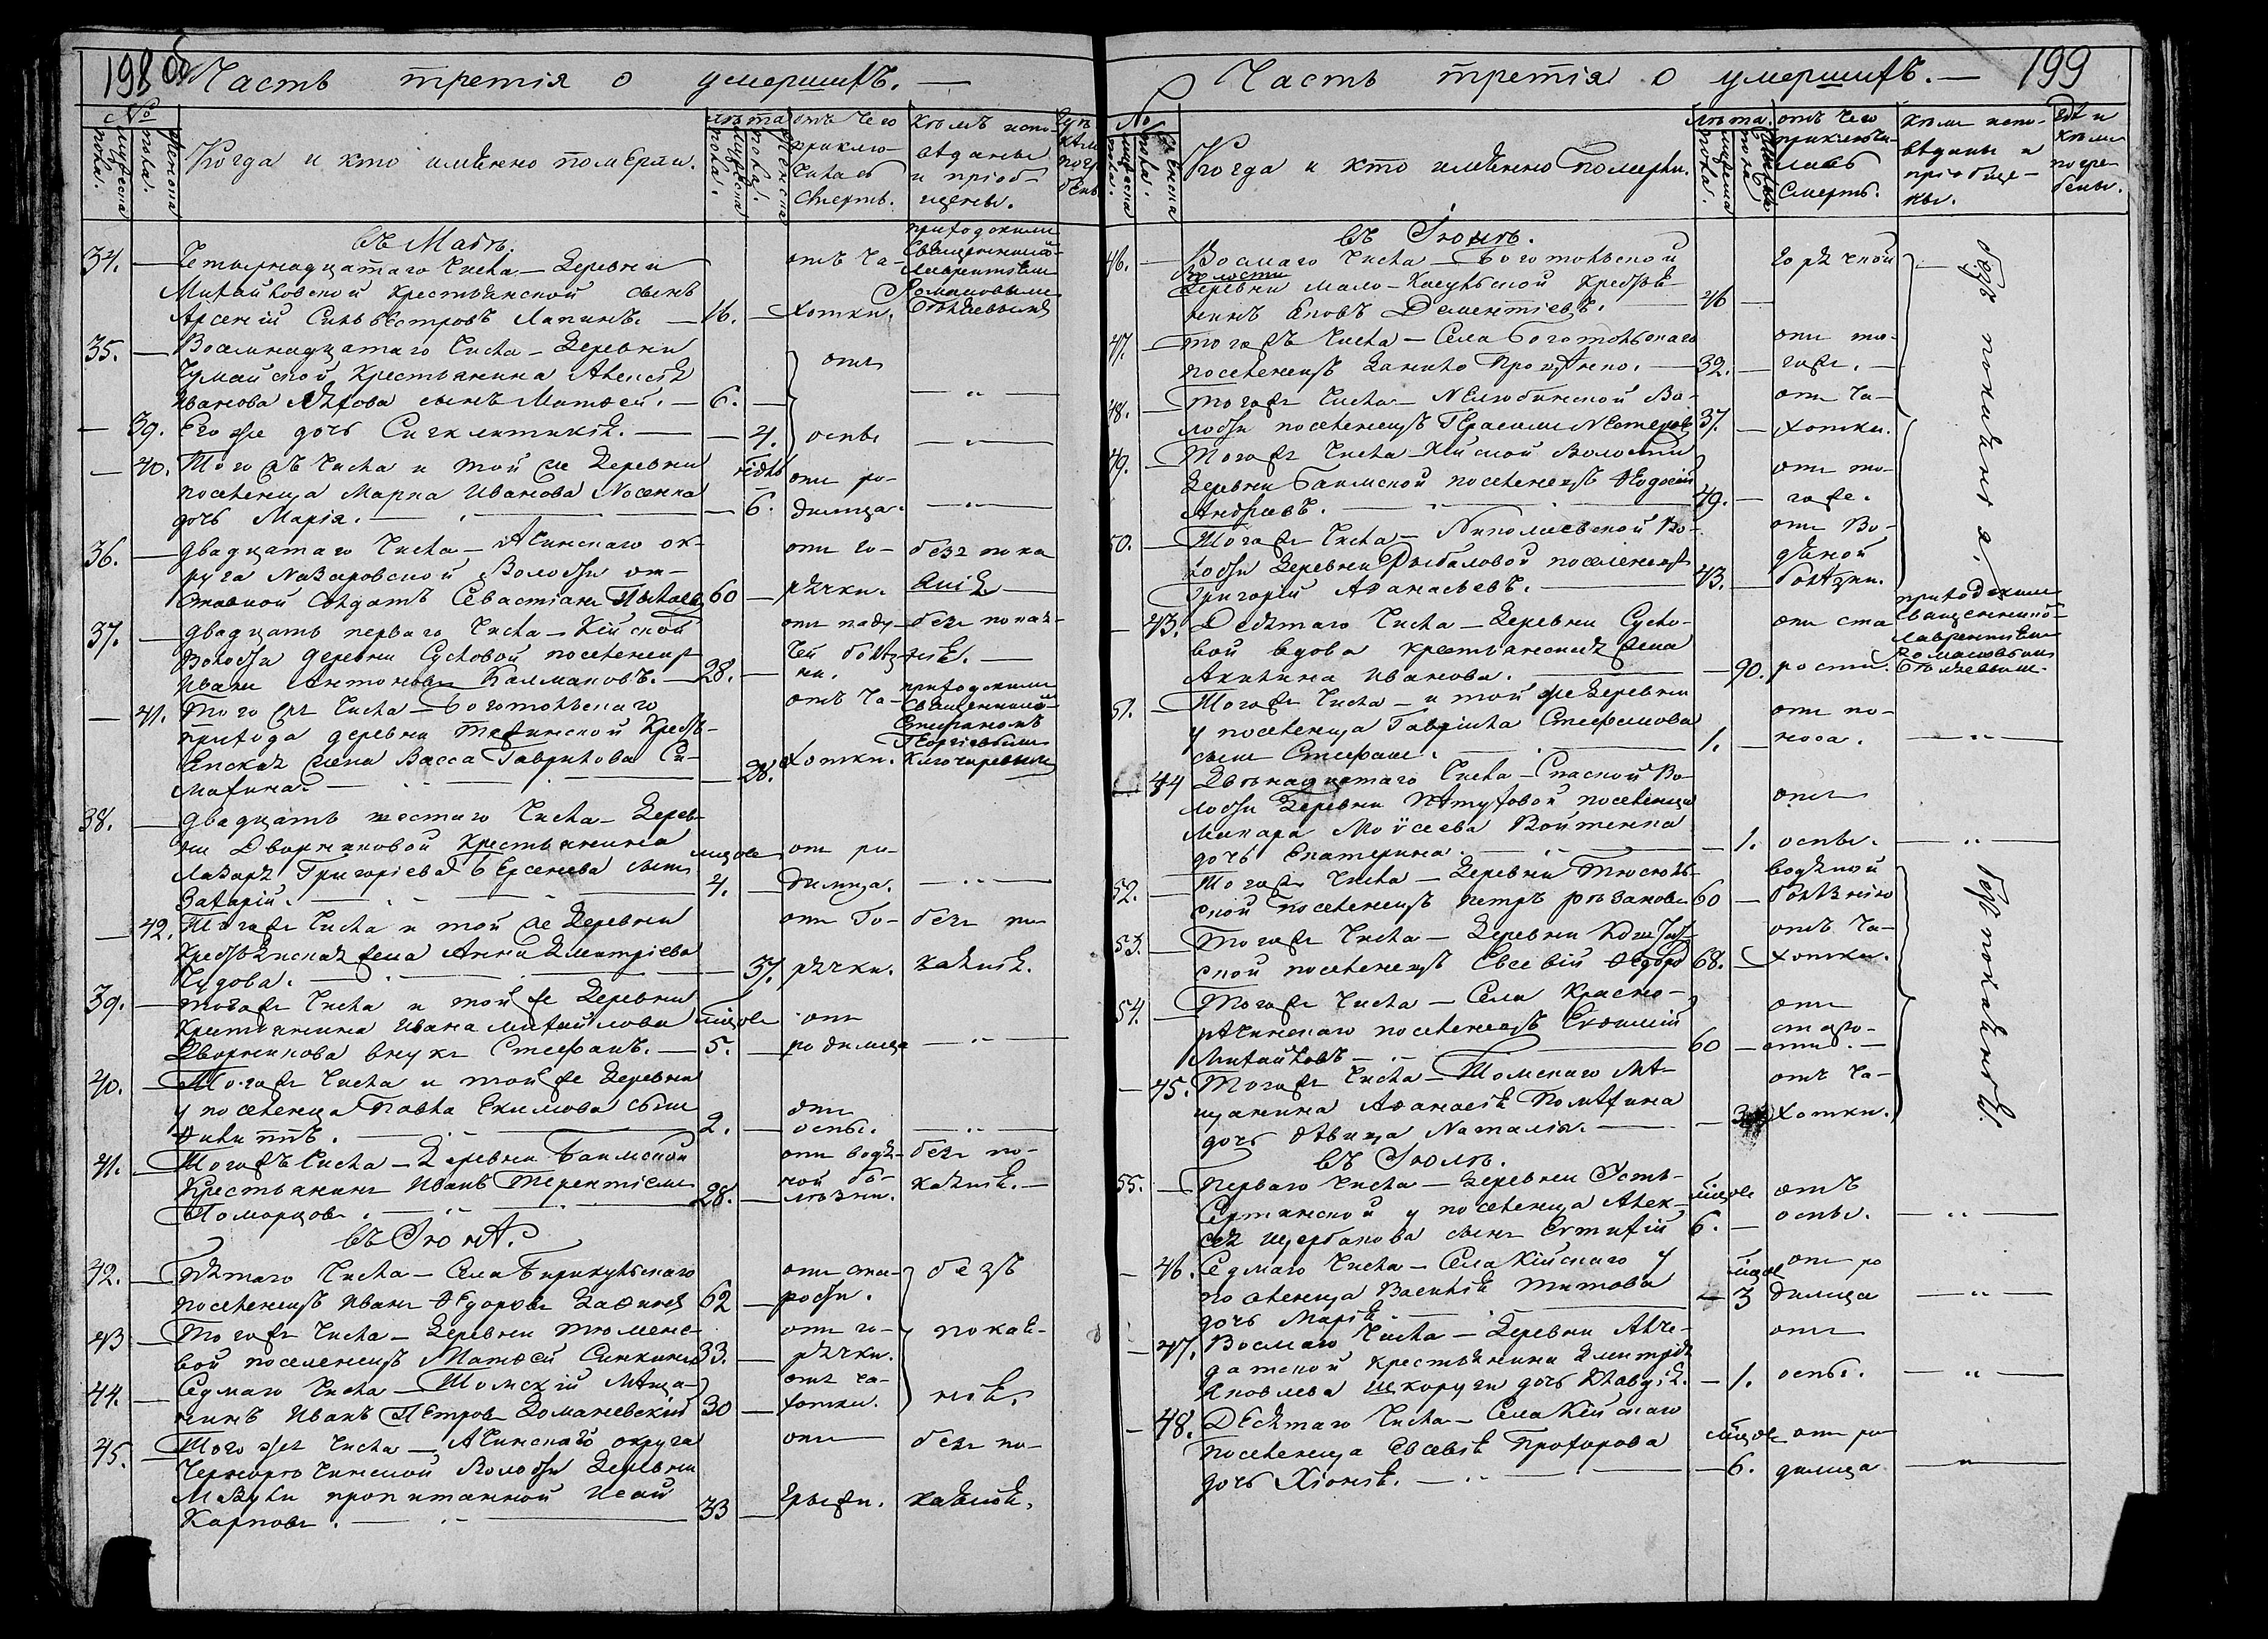 198 об
Часть третія о умершихъ. —
№
мужеска пола.
женска пола.
Когда и кто имѣнно помѣрли.
лѣта
мужеска пола.
женска пола.
отъ чего приклю-
чилась
смерть.
кѣмъ испо-
вѣданы
и пріоб-
щены.
въ Маѣ.
34. — Четырнадцатаго числа — Деревни
Михайловской крестьянской сынъ
Арсеній Сильвестровъ Лапинъ. — 16. —
отъ ча-
хотки.
приходскимъ
Священникомъ
Лаврентіемъ
Романовымъ
35. — Восемнадцатаго числа — Деревни
Чумайской Крестьянина Алексѣя
Иванова сынъ Матѳей. — 6. —
отъ
— 39. Его же дочь Сигклитикія. — — 4.
оспы — „ —
— 40. Того жъ числа и той же Деревни
поселенца Марка Иванова Носенка
дочь Марія. — — 6.
отъ ро-
димца. — „ —
36. — Двадцатаго числа — Ачинскаго ок-
руга Назаровской Волости от-
ставной Солдатъ Севастіанъ 60 —
отъ го-
рячки.
безъ пока
янія —
37. — Двадцать перваго числа — Кійской
Волости деревни Сусловой поселенецъ
Иванъ Антоновъ Калмаковъ. — 28. —
отъ паду-
чей болѣз-
ни.
безъ покая-
нія. —
— 41. Того жъ числа — Боготольскаго
прихода деревни Тяжинской Кресть-
янская жена Васса Гаврилова Си-
махина. — — 28.
отъ ча-
хотки.
приходскимъ
Священникомъ
Стефаномъ
Георгіевымъ
Ключаревымъ
38. — Двадцать шестаго числа — Дерев-
ни Дворниковой Крестьянина
Лазаря Григоріева сынъ
Захарій. — мцове 4. —
отъ ро-
димца. — „ —
— 42. Тогожъ числа и той же Деревни
Крестьянская жена Анна Димитріева
Чудова. — — 37.
отъ го-
рячки.
безъ по
каянія.
39. — Тогожъ числа и той же Деревни
Крестьянина Ивана Михайлова
Дворникова внукъ Стефанъ. — мцове 5. —
отъ
родимца — „ —
40. — Тогожъ числа и той же Деревни
у поселенца Павла Екимова сынъ
Филиппъ. — 2. —
отъ
оспы. — „ —
41. — Тогожъ числа — Деревни Баимской
Крестьянинъ Иванъ Терентіевъ
Поморцовъ. — 28. —
отъ водя-
ной бо-
лѣзни.
безъ по-
каянія. —
въ Іюнѣ.
42. — Пятаго числа — Села Бирикульскаго
поселенецъ Иванъ Ѳедоровъ 62 —
отъ ста-
рости.
безъ
43 — Тогожъ числа — Деревни Тюмене-
вой поселенецъ Матѳей Синкинъ 33. —
отъ го-
рячки.
покая-
44. — Седмаго числа — Томскій Мѣща-
нинъ Иванъ Петровъ Романевскій 30 —
отъ ча-
хотки.
нія.
45. — Того же числа — Ачинскаго округа
Чернорѣчинской Волости Деревни
Мазули пропитанной Исай
Карповъ. — 33 —
отъ
грыжи.
безъ по-
каянія.
Часть третія о умершихъ. — 199
№
мужеска пола.
женска
Когда и кто имѣнно померли.
лѣта.
мужеска пола.
отъ чего
приключи-
лась
смерть.
кѣмъ испо-
вѣданы и
пріобще-
ны.
гдѣ и
кѣмъ
погре-
бены.
въ Іюнѣ.
46. — Восмаго числа — Боготольской
Волости
Деревни Мало-Косульской Кресть-
нинъ Іовъ Дементіевъ. — 46 —
горячкой
безъ покаянія.
47. — Тогожъ числа — Села Боготольскаго
поселенецъ Данило Проценко. — 32. —
отъ то-
гоже. —
48. — Тогожъ числа — Нелюбинской Во-
лости поселенецъ Герасимъ Нестеровъ 37. —
отъ ча-
хотки.
49. — Тогожъ числа Кійской Волости
Деревни Баимской поселенецъ Ѳеодосій
Андреевъ. — 49. —
отъ то-
гоже.
50. — Тогожъ числа — Николаевской Во-
лости Деревни Рыбаловой поселенецъ
Григорій Аѳанасьевъ. — 43. —
отъ Во-
дяной
болѣзни.
— 43. Девятаго числа — Деревни Сусло-
вой вдова крестьянская жена
Акилина Иванова. — — 90.
отъ ста
рости.
приходскимъ
Священникомъ
Лаврентіемъ
Романовымъ
51. — Тогожъ числа — и той же Деревни
у поселенца Гавріила Стефанова
сынъ Стефанъ. — 1. —
отъ по-
носа. — „ —
— 44 Двѣнадцатаго числа — Спаской Во-
лости Деревни Пѣтуховой поселенца
Макара Моѵсеева Войтенка
дочь Екатерина. — — 1.
отъ
оспы. — „ —
52. — Тогожъ числа — Деревни Тюсюль-
ской поселенецъ Петръ Рѣзановъ 60 —
водяной
болѣзнію
безъ покаянія.
53. — Тогожъ числа — Деревни
ской поселенецъ Евсевій Ѳедоро 68. —
отъ ча-
хотки.
54. — Тогожъ числа — Села Красно-
рѣчинскаго поселенецъ Евѳимій
Михайловъ — 60 —
отъ
старо-
сти. —
— 45. Тогожъ числа — Томскаго Мѣ-
щанина Аѳанасія Помѣхина
дочь дѣвица Наталія. —
отъ ча-
хотки.
въ Іюлѣ.
55. — Перваго числа — Деревни Усть-
Сертинской у поселенца Алек-
сея Щербакова сынъ Евтихій мцове 6. —
отъ
оспы. — „ —
— 46. Седмаго числа — Села Кійскаго у
поселенца Василія Титова
дочь Марія. — мцове — 3
отъ ро
димца — „ —
— 47. Восмаго числа — Деревни Алче-
датской Крестьянина Димитрія
Яковлева Шкоруги дочь Клавдія. — 1.
отъ
оспы. — „ —
— 48. Десятаго числа — Села Кійскаго
поселенца Евсевія Прохорова
дочь Хіонія. — мцове — 6.
отъ ро
димца — „ —